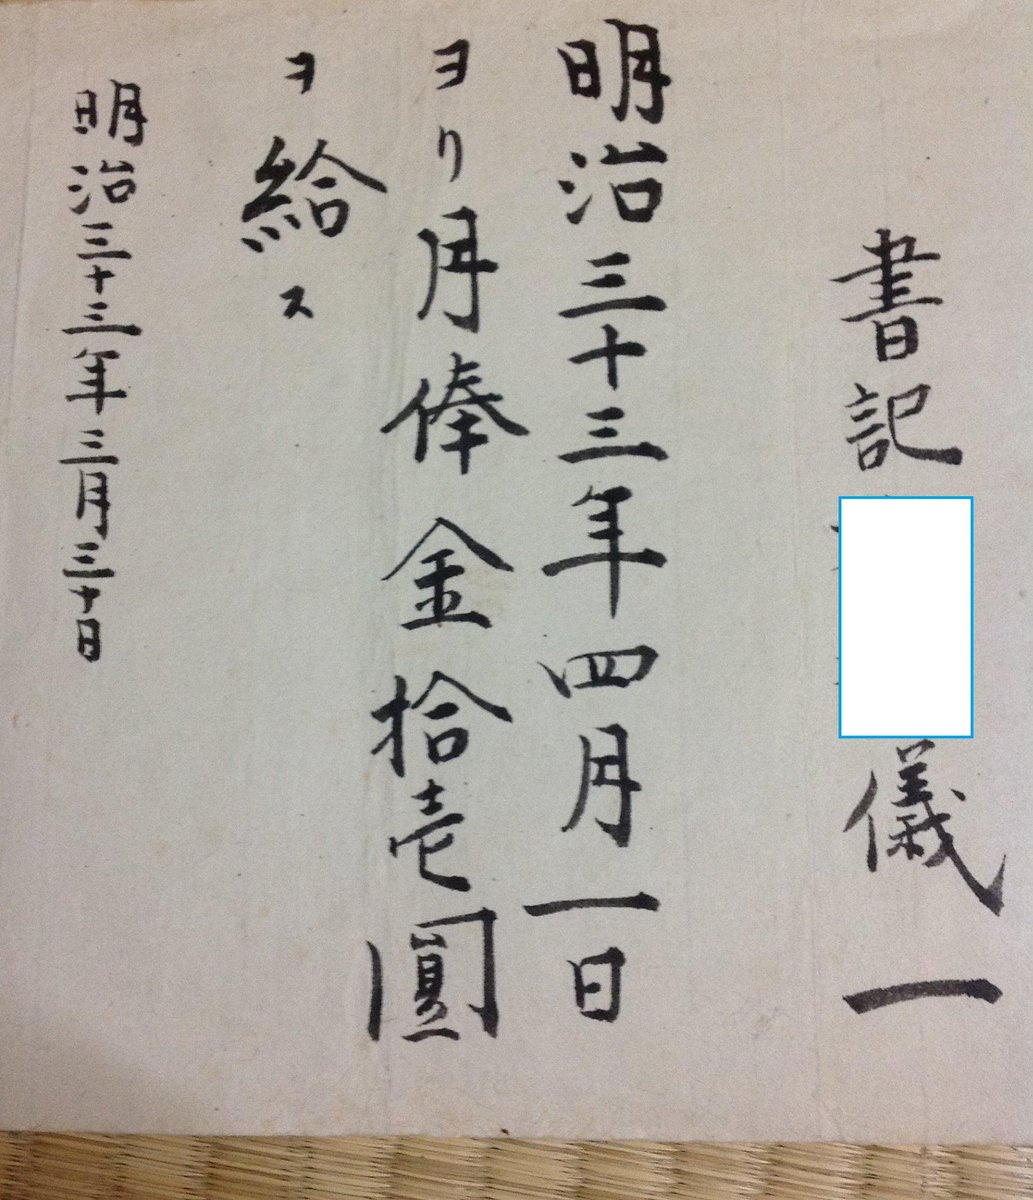 書記 儀一
明治三十三年四月一日
ヨリ月俸金拾壱圓
ヲ給ス
明治三十三年三月三十日